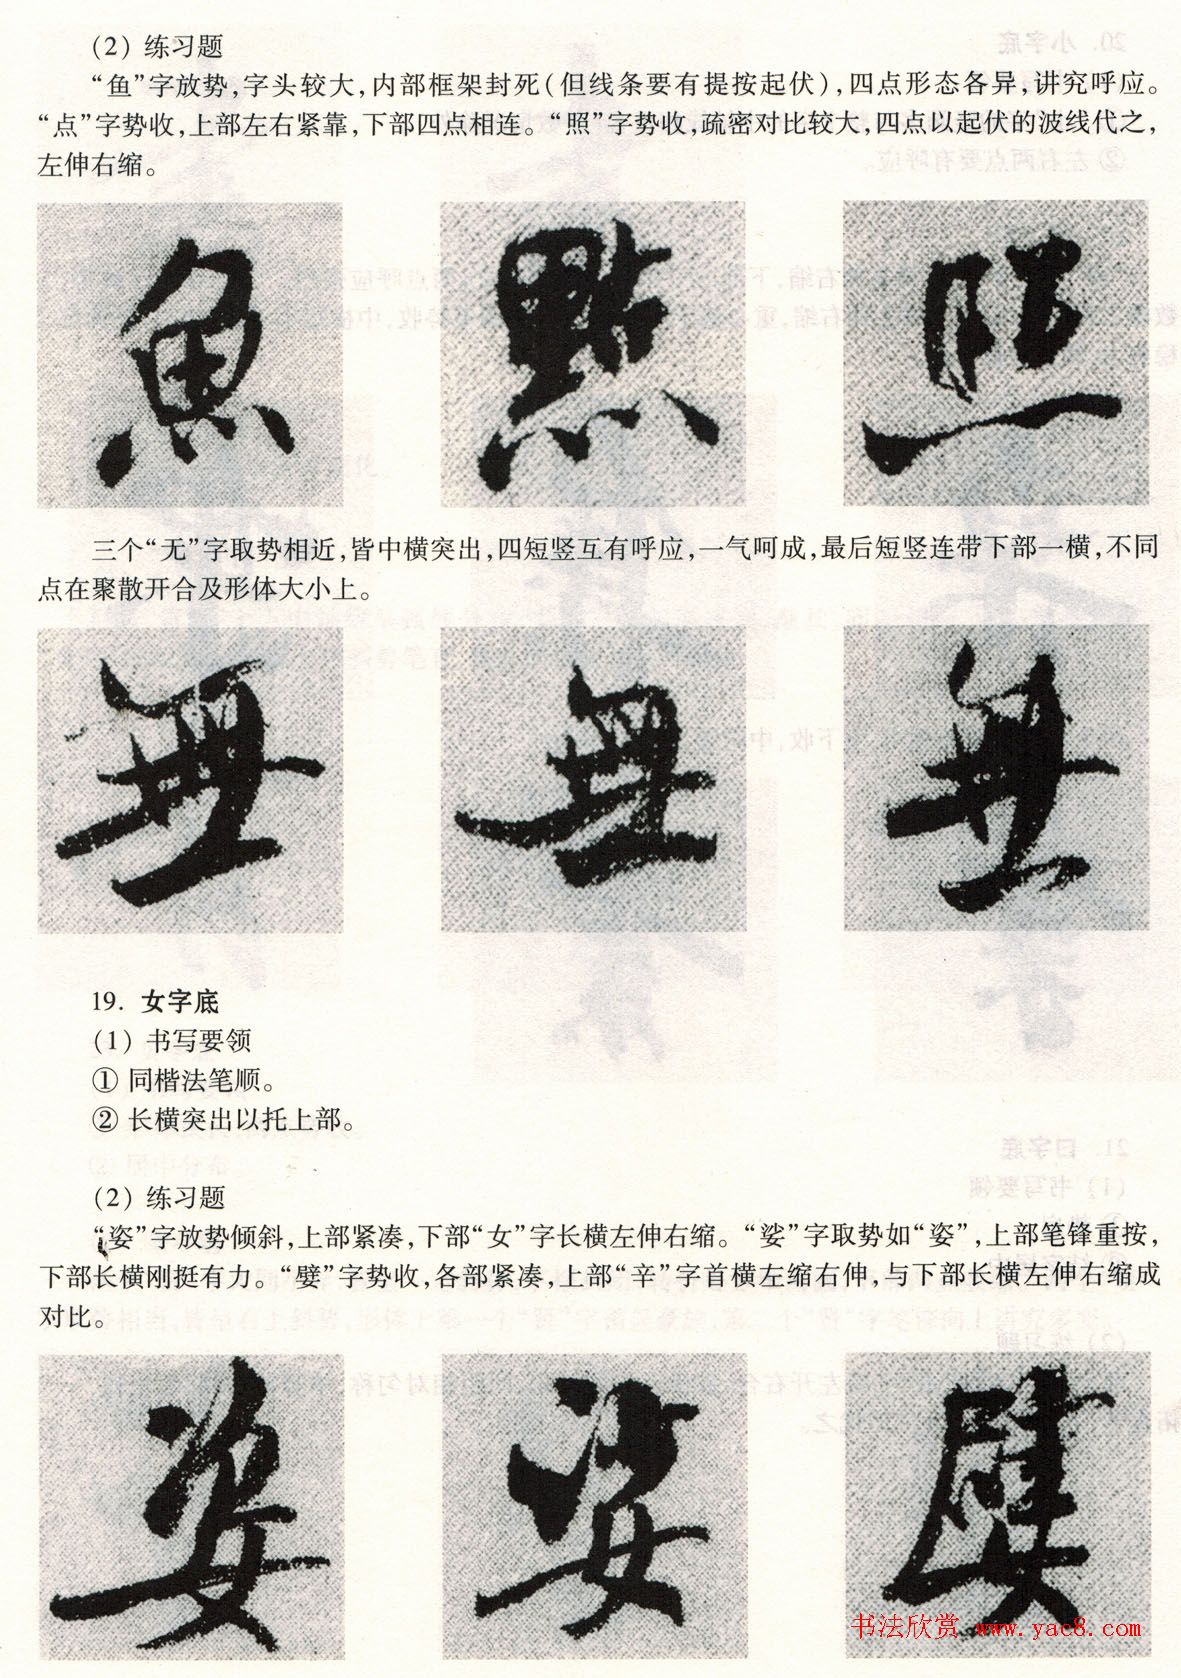 (2) 练习题
“鱼”字放势，字头较大，内部框架封死(但线条要有提按起伏)，四点形态各异，讲究呼应。
“点”字势收，上部左右紧靠，下部四点相连。“照”字势收，疏密对比较大，四点以起伏的波线代之，
左伸右缩。
魚 點 照
三个“无”字取势相近，皆中横突出，四短竖互有呼应，一气呵成，最后短竖连带下部一横，不同
点在聚散开合及形体大小上。
無 無 無
19. 女字底
(1) 书写要领
① 同楷法笔顺。
② 长横突出以托上部。
(2) 练习题
“姿”字放势倾斜，上部紧凑，下部“女”字长横左伸右缩。“娑”字取势如“姿”，上部笔锋重按，
下部长横刚挺有力。“嬖”字势收，各部紧凑，上部“辛”字首横左缩右伸，与下部长横左伸右缩成
对比。
姿 娑 嬖
书法欣赏 www.yac8.com